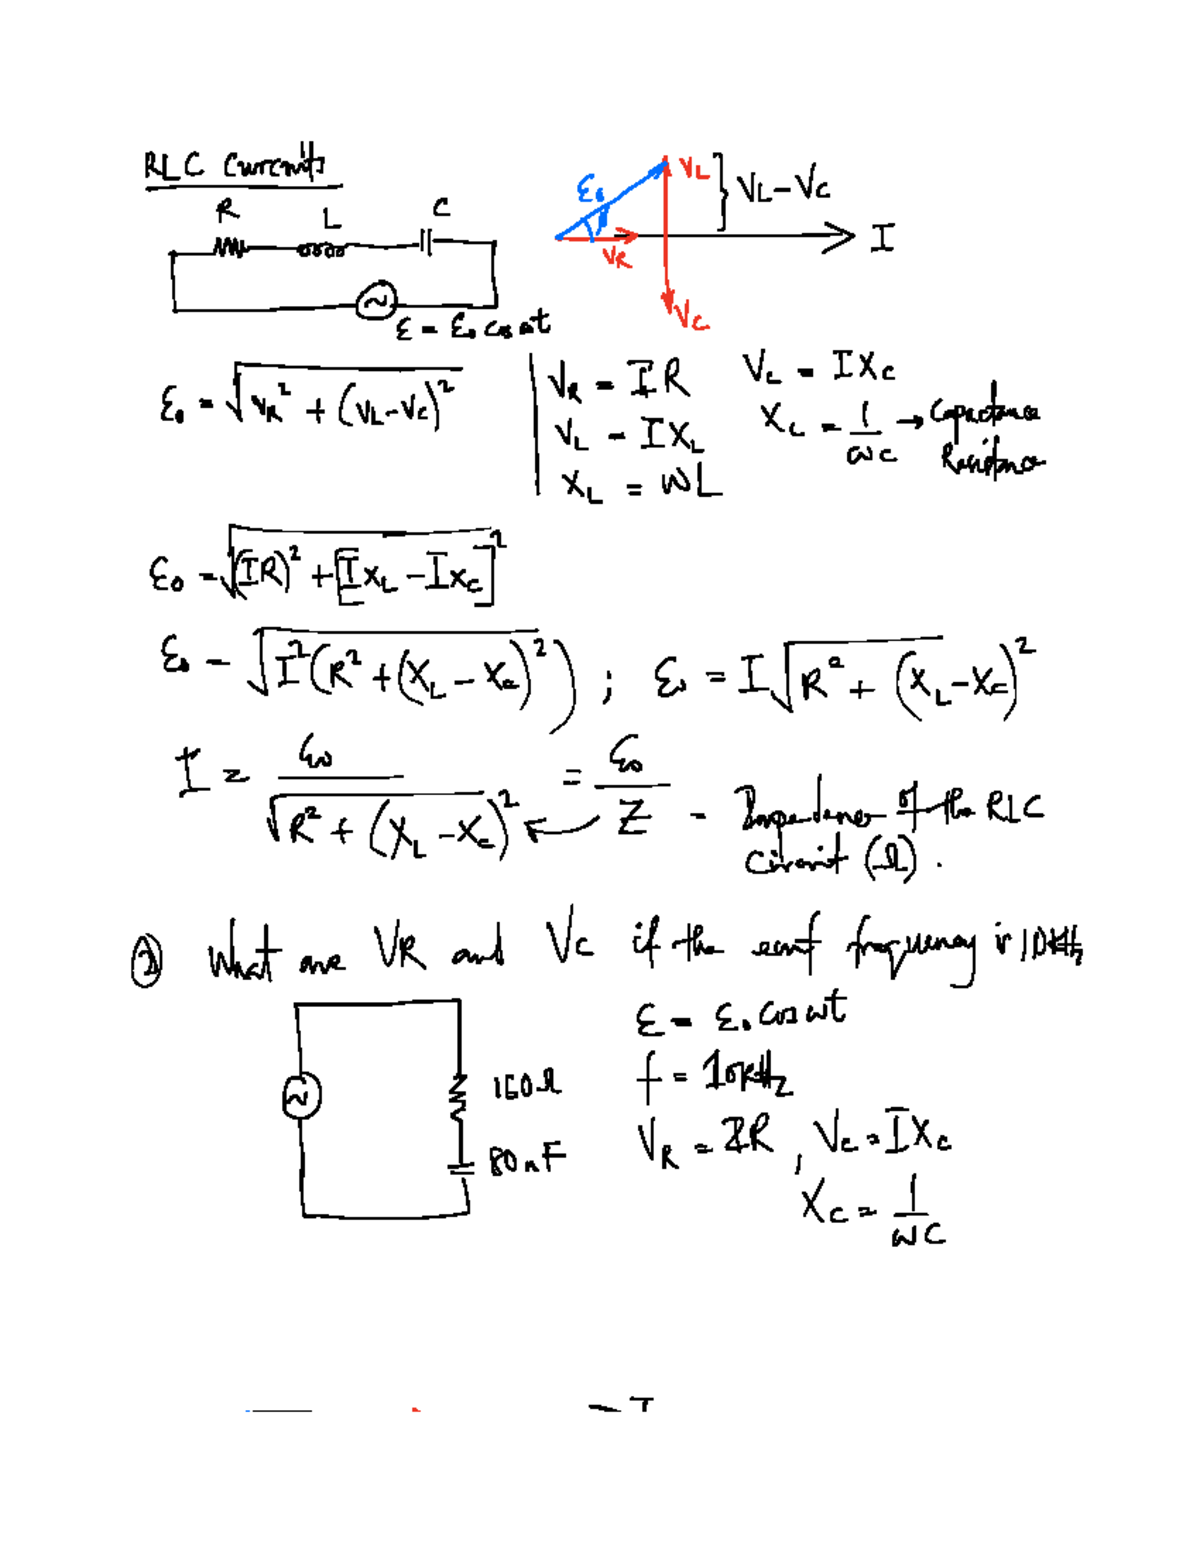 RLC Circuits
R L C
ε = ε₀ cos ωt
ε₀ VL } VL - VC
I
VR
VC
ε₀ = √(VR² + (VL - VC)²)
VR = IR
VL = IXL
XL = ωL
VC = IXC
XC = 1/ωC → Capacitance
Resistance
ε₀ = √((IR)² + [IXL - IXC]²)
ε₀ = √(I²(R² + (XL - XC)²)) ; ε₀ = I√(R² + (XL - XC)²)
I = ε₀/√(R² + (XL - XC)²) = ε₀/Z - Impedance of the RLC
Circuit (Ω).
What are VR and VC if the emf frequency is 10kHz
ε = ε₀ cos ωt
160Ω
f = 10kHz
80nF
VR = IR, VC = IXC
XC = 1/ωC